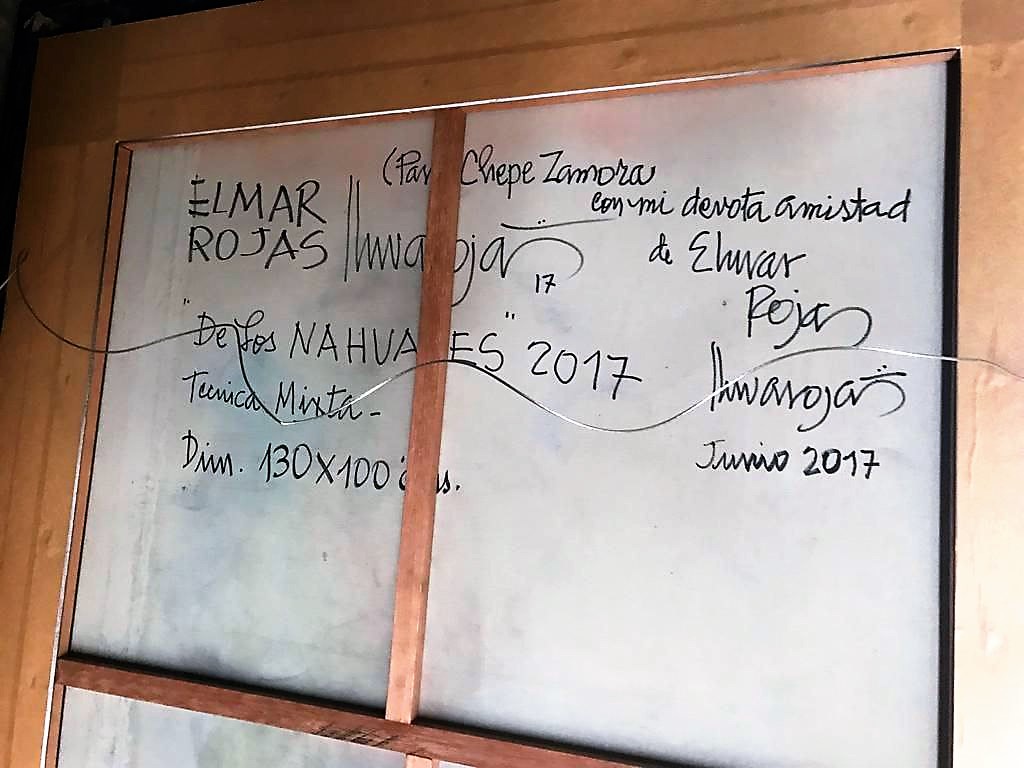 (Para Chepe Zamora
con mi devota amistad
de Elmar
Rojas
elmarrojas
Junio 2017
ELMAR
ROJAS elmarrojas
17
"De los NAHUALES" 2017
Tecnica Mixta-
Dim. 130X100 cms.